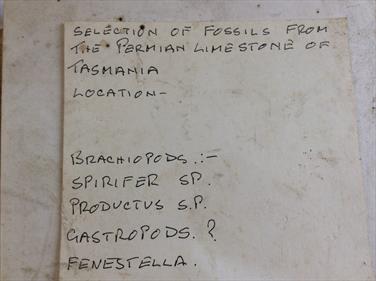 SELECTION OF FOSSILS FROM
THE PERMIAN LIMESTONE OF
TASMANIA
LOCATION-
BRACHIOPODS.:-
SPIRIFER SP.
PRODUCTUS S.P.
GASTROPODS. ?
FENESTELLA.